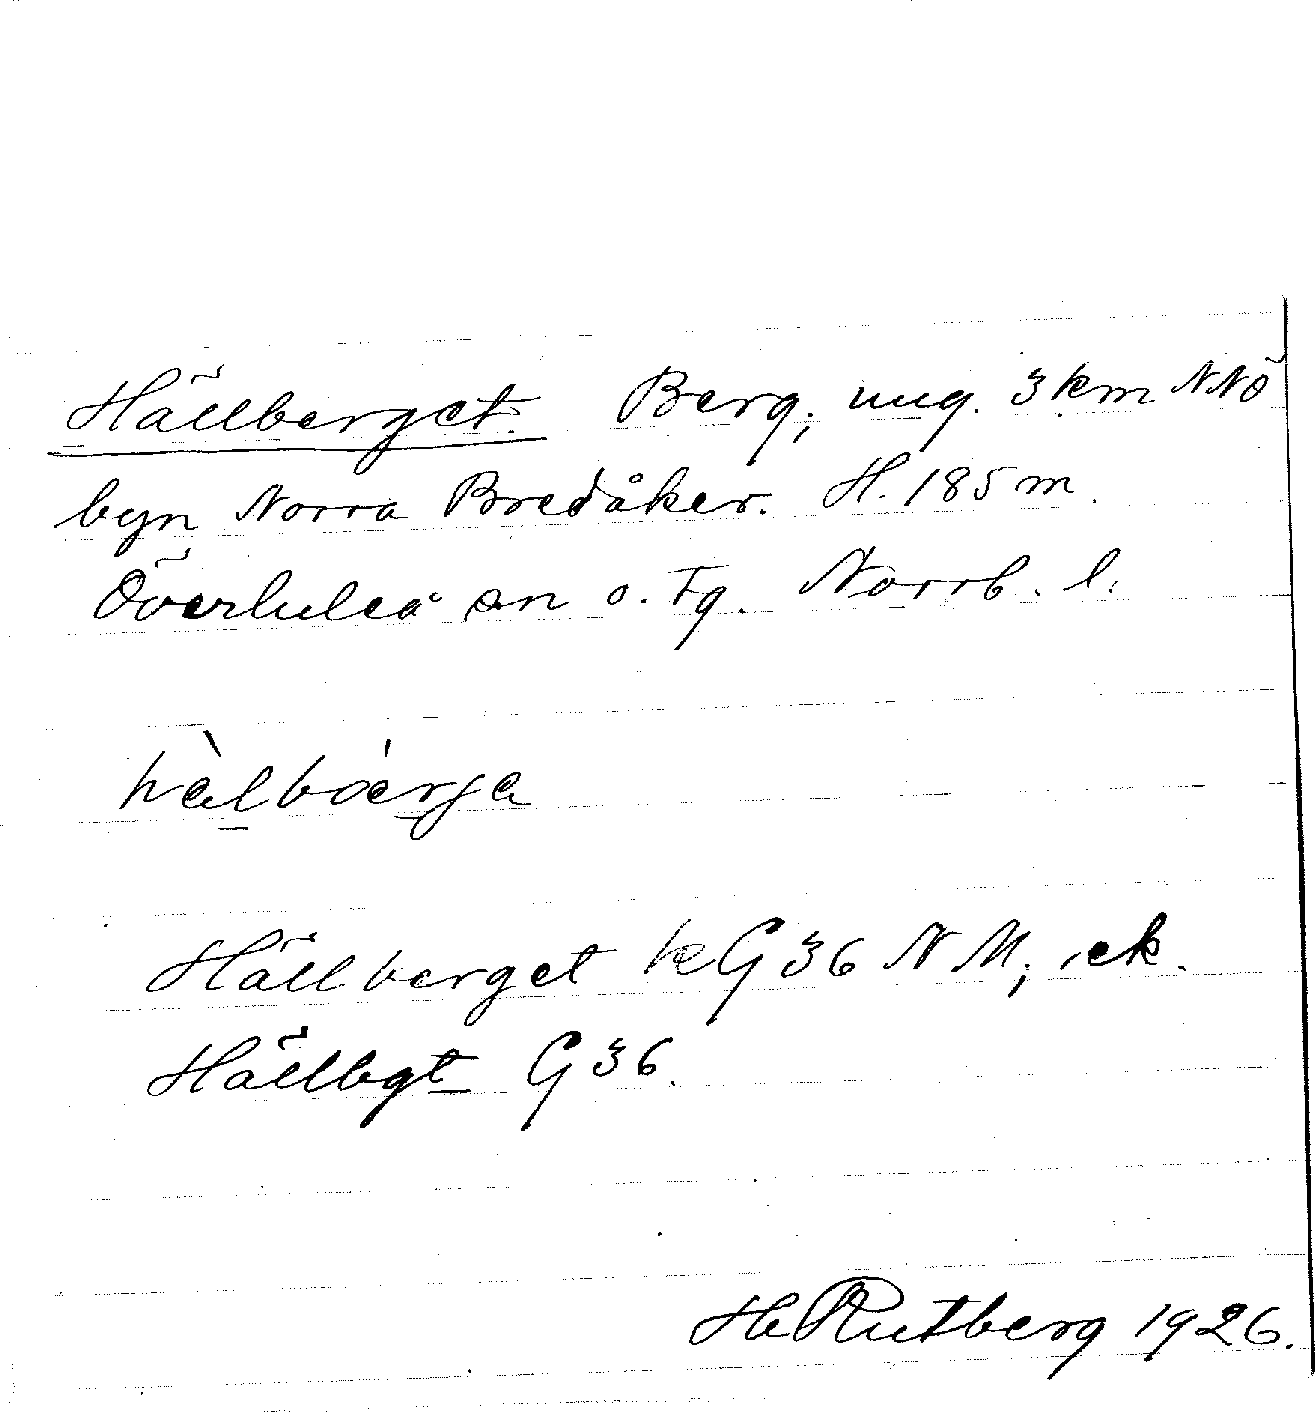 Hällberget. Berg, ung. 3 km NNÖ
byn Norra Bredåker. H. 185 m.
Överluleå sn o. Tg. Norrb. l.
Hällberget kG36 NM, ek.
Hällbgt G36.
He Rutberg 1926.